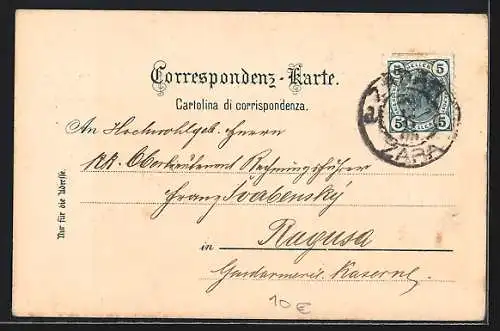 Correspondenz-Karte.
Cartolina di corrispondenza.
5 HELLER 5
5 5
ZARA
ZARA
An Hochwohlgeb. Herrn
KK. Oberleutenant Rechnungsführer
Franz Svabenský
in Ragusa
Gendarmerie Kaserne
Nur für die Adresse.
10 €